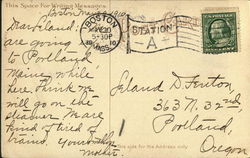 This Space For Writing Messages
Boston, 1910.
Dear Leland:
are going
to Portland
Maine, while
here. Think we
will go on the
steamer. Mare
kind of tired of
trains. Your
mother.
BOSTON
5-30P
MASS.
STATION
A
Leland D. Fenton,
363 N. 32nd,
Portland,
Oregon
This side for the Address only